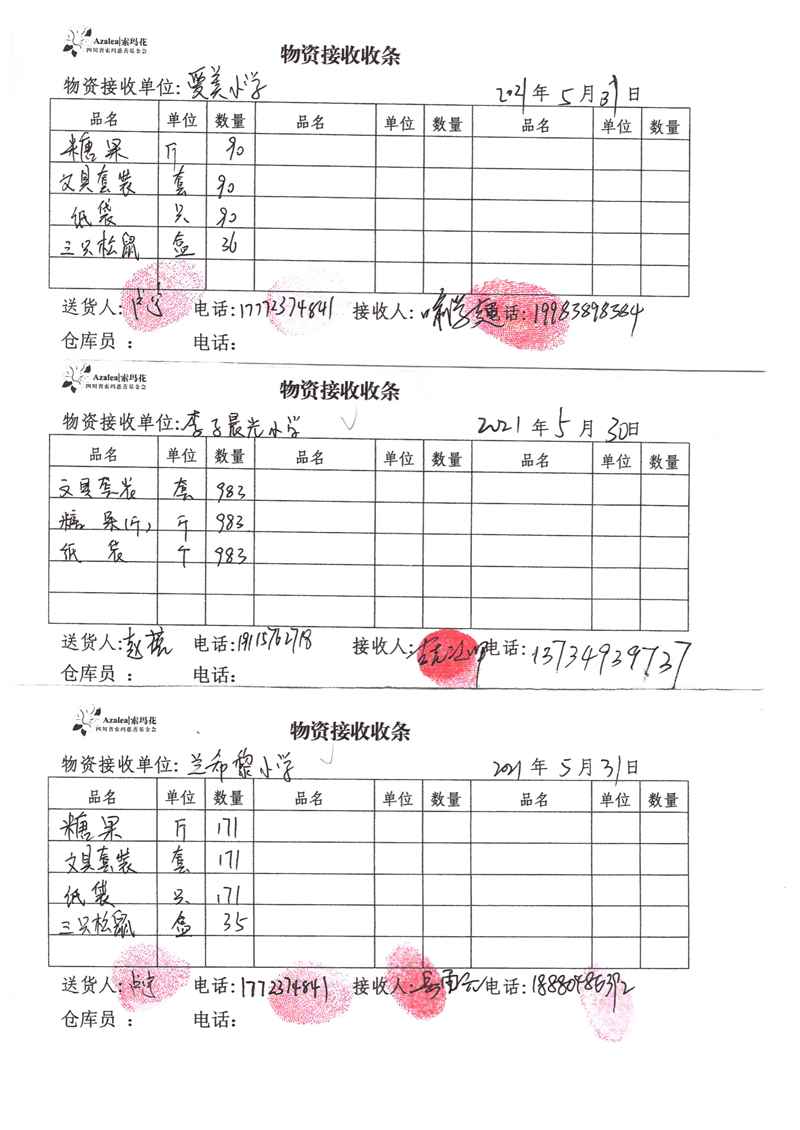 Azalea|索玛花
四川省索玛慈善基金会
物资接收收条
物资接收单位: 爱美小学 2021 年 5 月 31 日
品名 单位 数量 品名 单位 数量 品名 单位 数量
糖果 斤 90
文具套装 套 90
纸袋 只 90
三只松鼠 盒 36
送货人: 电话: 1772374841 接收人: 电话: 19983898384
仓库员 : 电话:
Azalea|索玛花
四川省索玛慈善基金会
物资接收收条
物资接收单位: 李子晨光小学 2021 年 5 月 30日
品名 单位 数量 品名 单位 数量 品名 单位 数量
文具套装 套 983
糖果(斤) 斤 983
纸袋 个 983
送货人: 电话: 19115762718 接收人: 电话: 13734939737
仓库员 : 电话:
Azalea|索玛花
四川省索玛慈善基金会
物资接收收条
物资接收单位: 兰布黎小学 2021 年 5 月 31日
品名 单位 数量 品名 单位 数量 品名 单位 数量
糖果 斤 171
文具套装 套 171
纸袋 只 171
三只松鼠 盒 35
送货人: 电话: 1772374841 接收人: 电话:
仓库员 : 电话: